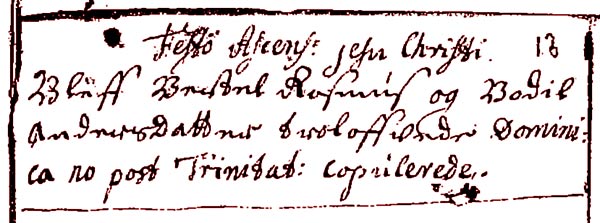 Festo Ascens: Jesu Christi. 13
Bleff Bertel Rasmus og Bodil
Andersdatter troloffvede Domini:
ca no post Trinitat: copulerede.